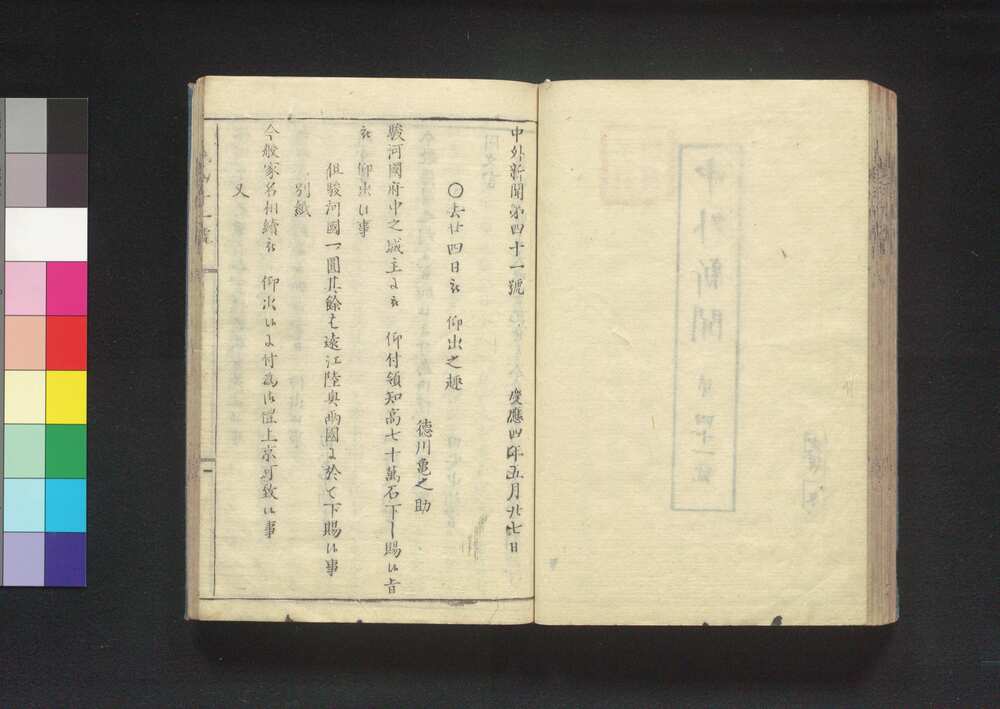 中外新聞第四十一號
慶應四年五月廿七日
○去廿四日被　仰出之趣
徳川亀之助
駿河國府中之城主ニ被　仰付領知高七十萬石下し賜候旨
被　仰出候事
但駿河國一圓其餘は遠江陸奥両國ニ於て下賜候事
別紙
今般家名相續被　仰出候ニ付為御禮上京可致候事
又
中外新聞
第四十一號